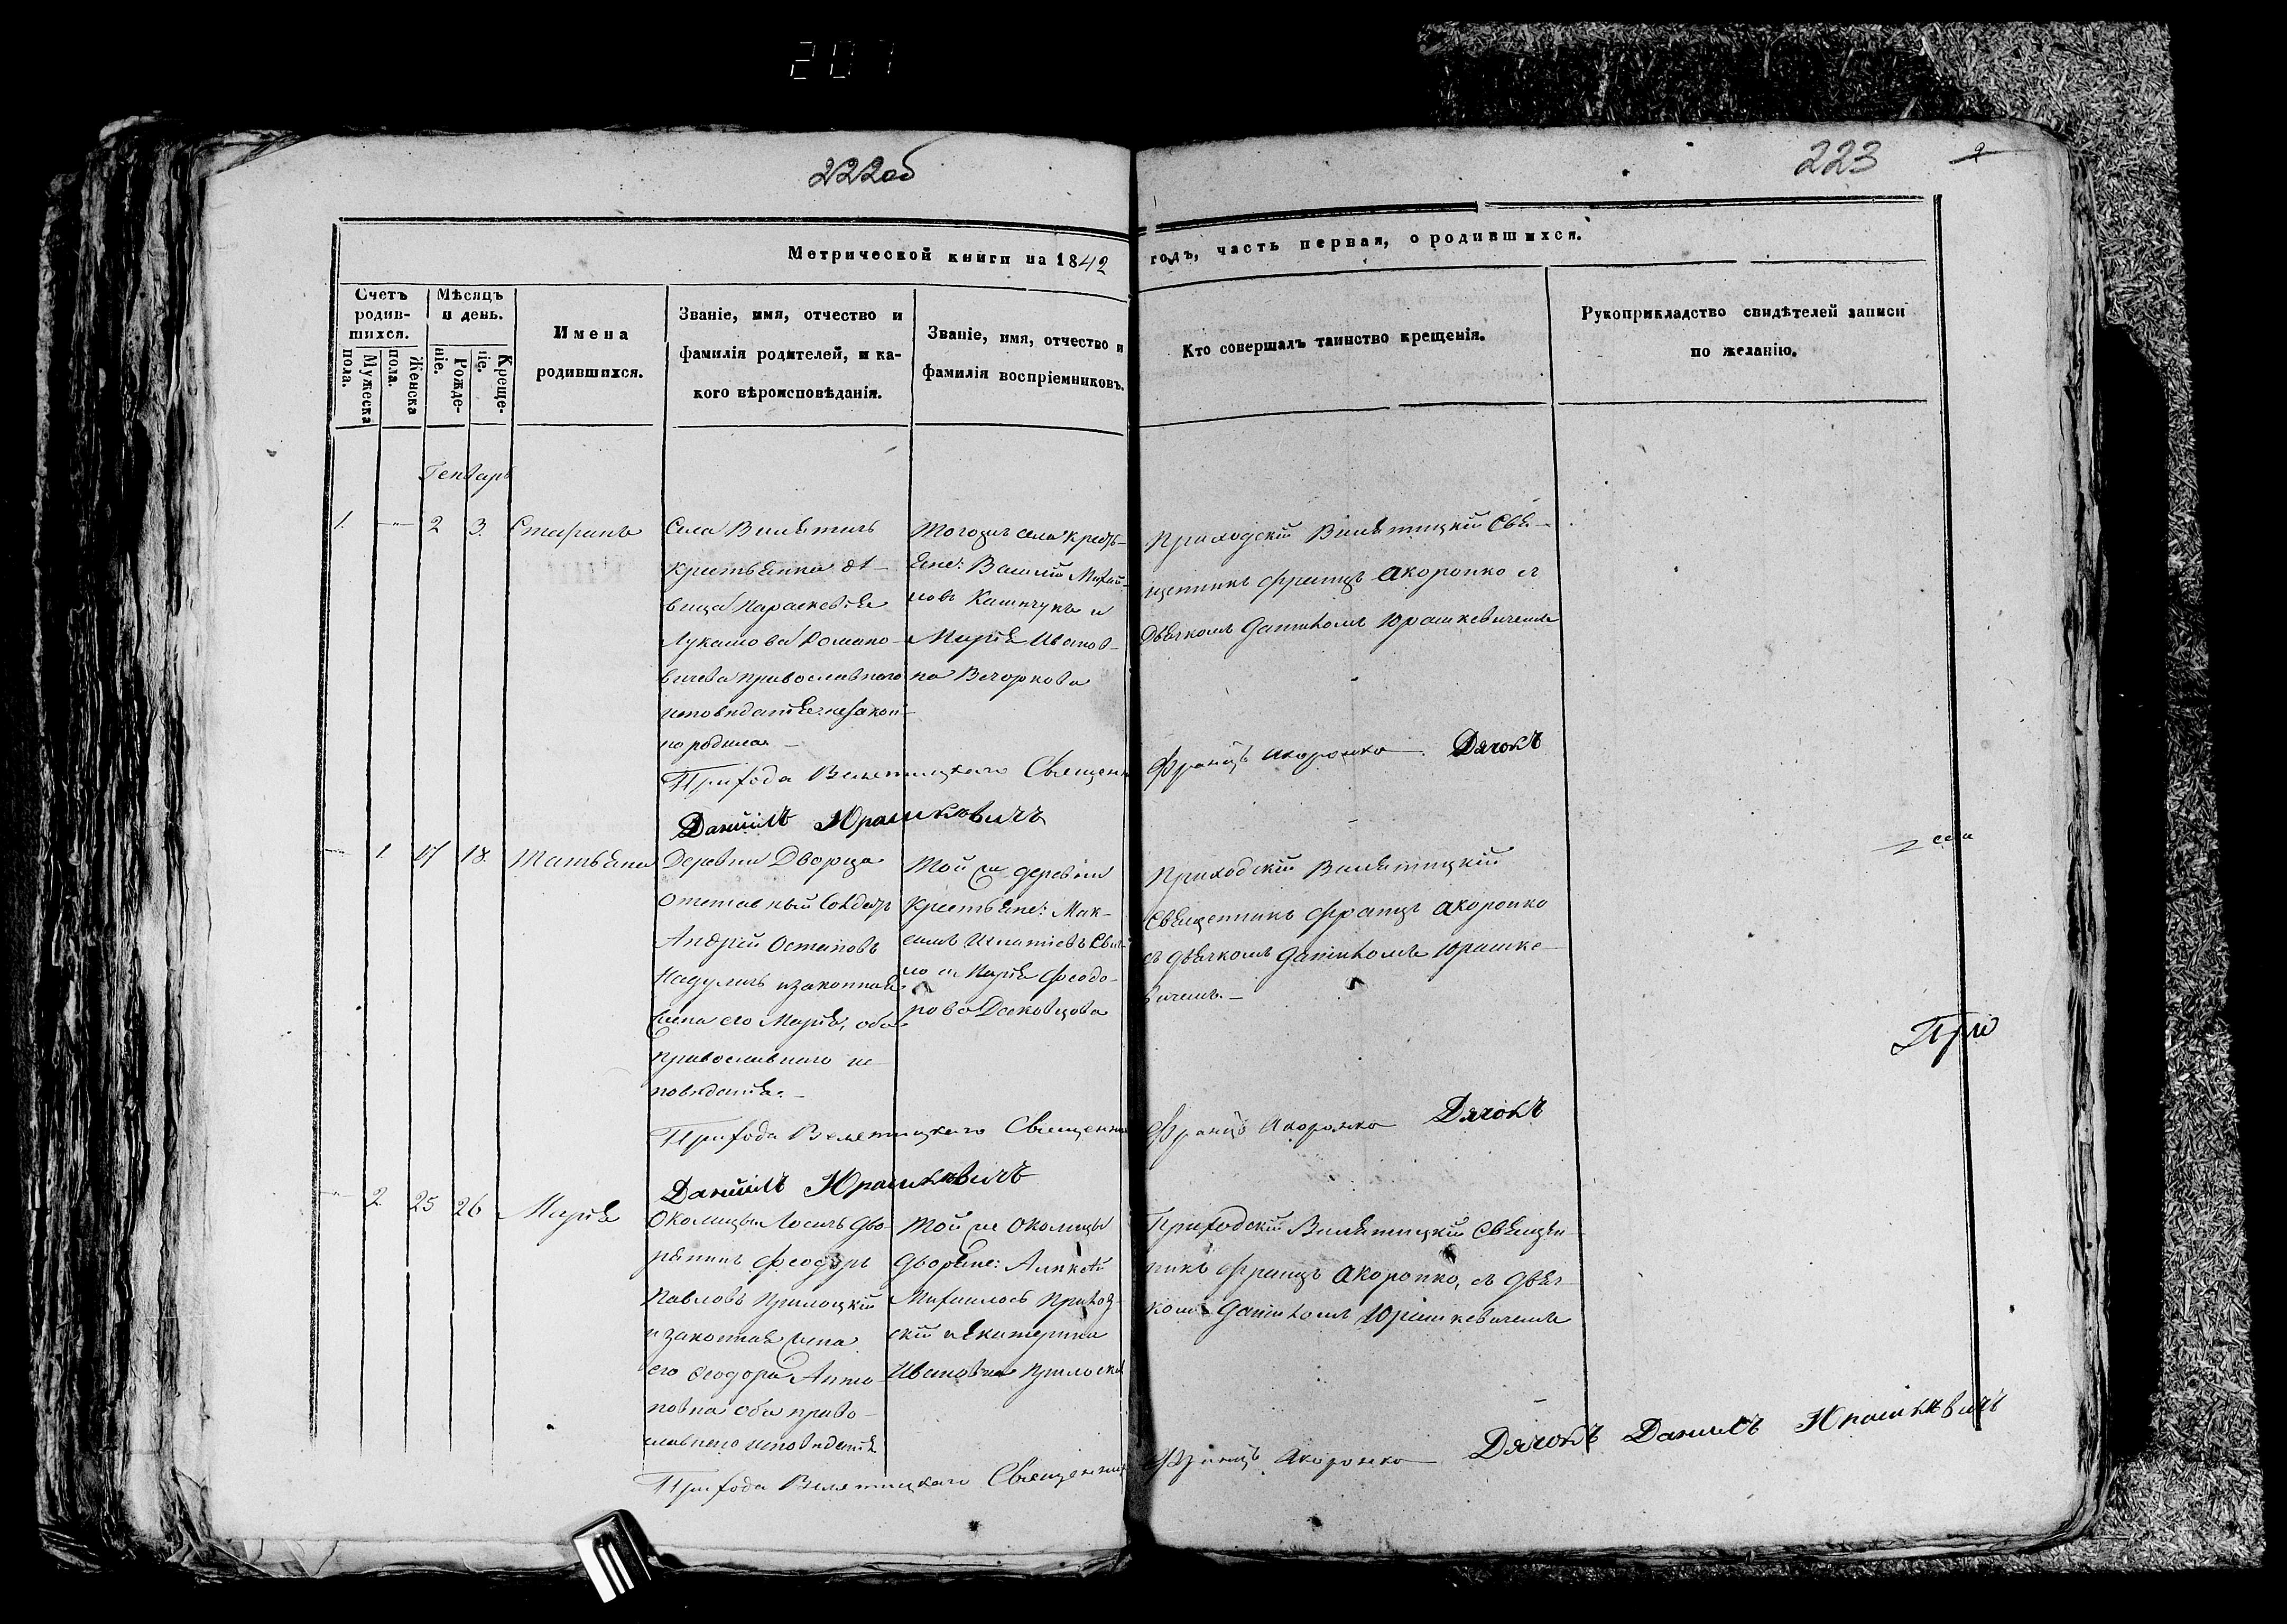 207
222об
223
2
Метрической книги на 1842 годъ, часть первая, о родившихся.
Счетъ родив-
шихся.
Мужеска пола.
Женска пола.
Мѣсяцъ и день.
Рожде-
ніе.
Креще-
ніе.
Имена
родившихся.
Званіе, имя, отчество и
фамилія родителей, и ка-
кого вѣроисповѣданія.
Званіе, имя, отчество и
фамилія воспріемниковъ.
Кто совершалъ таинство крещенія.
Рукоприкладство свидѣтелей записи
по желанію.
Генварь
1. 2 3. Стефанъ
Села Велятичь
крестьянка дѣ-
вица Параскевія
Лукашова Романо-
вичева православнаго
исповѣданія незакон-
но родила
Тогожъ села крестья-
яне: Василій Михай-
ловъ Кашичукъ и
Марія Иванов-
на Вечоркова
Приходскій Велятицкій Свя-
щенникъ Францъ Акоронко съ
дьячкомъ Даніиломъ Юрашкевичемъ
Прихода Велятицкаго Священни
Францъ Акоронко Дячокъ
Даниилъ Юрашкевичъ
1. 17 18. Татьяна
Деревни Дворца
отставный Солдатъ
Андрей Остаповъ
и законная
жена его Марія, оба
православнаго ис-
повѣданія.
Той же деревни
крестьяне: Мак-
симъ Игнатіевъ
и Марія Феодо-
рова
Приходскій Велятицкій
Священникъ Францъ Акоронко
съ дьячкомъ Даніиломъ Юрашке-
вичемъ.
сия
При
Прихода Велятицкаго Священни
Францъ Акоронко Дячокъ
Даниилъ Юрашкевичъ
2. 25 26 Марія
Околицы Лосичь дво-
рянинъ Феодоръ
Павловъ Прилоцкій
и законная жена
его Феодора Анто-
новна оба право-
славнаго исповѣданія
Той же Околицы
дворяне: Алексѣй
Михайловъ
скій и Екатерина
Ивановна
Приходскій Велятицкій Священ-
никъ Францъ Акоронко, съ дьяч-
комъ Даніиломъ Юрашкевичемъ
Прихода Велятицкаго Священни
Францъ Акоронко Дячокъ Даниилъ Юрашкевичъ